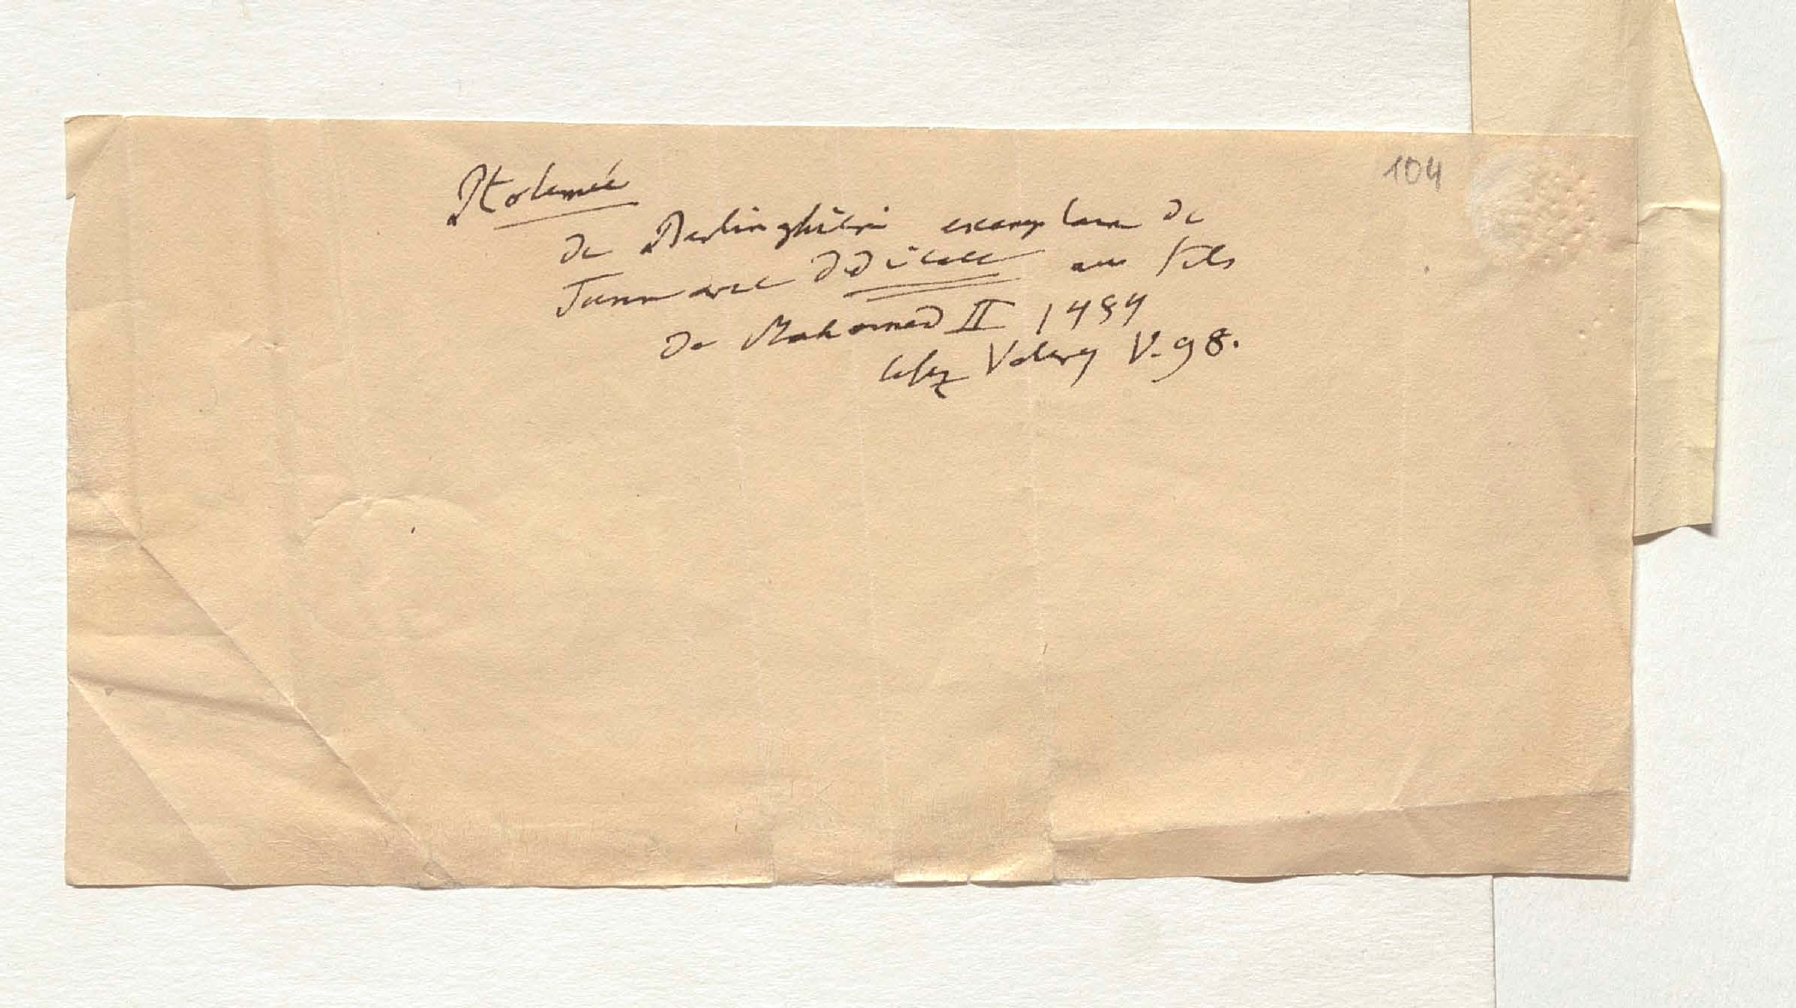 104
Ptolemée
de Berlinghieri exemplaire de
Turin avec dédicace au fils
de Mahomed II 1484
Valery V. 98.